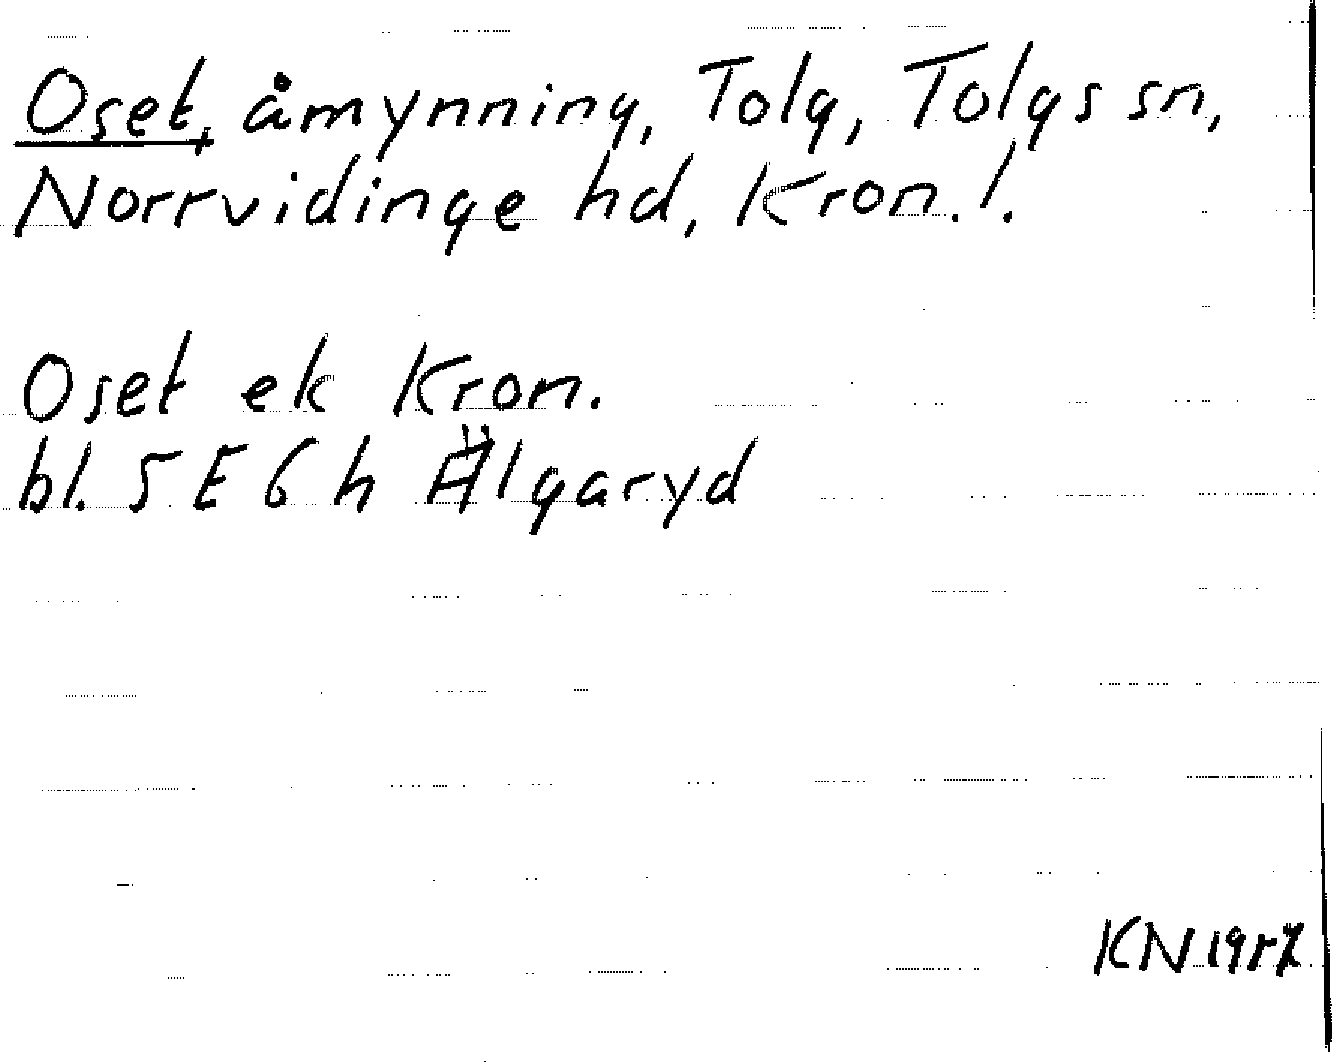 Oset, åmynning, Tolg, Tolgs sn,
Norrvidinge hd, Kron. l.
Oset ek Kron.
bl. 5 E 6 h Älgaryd
KN